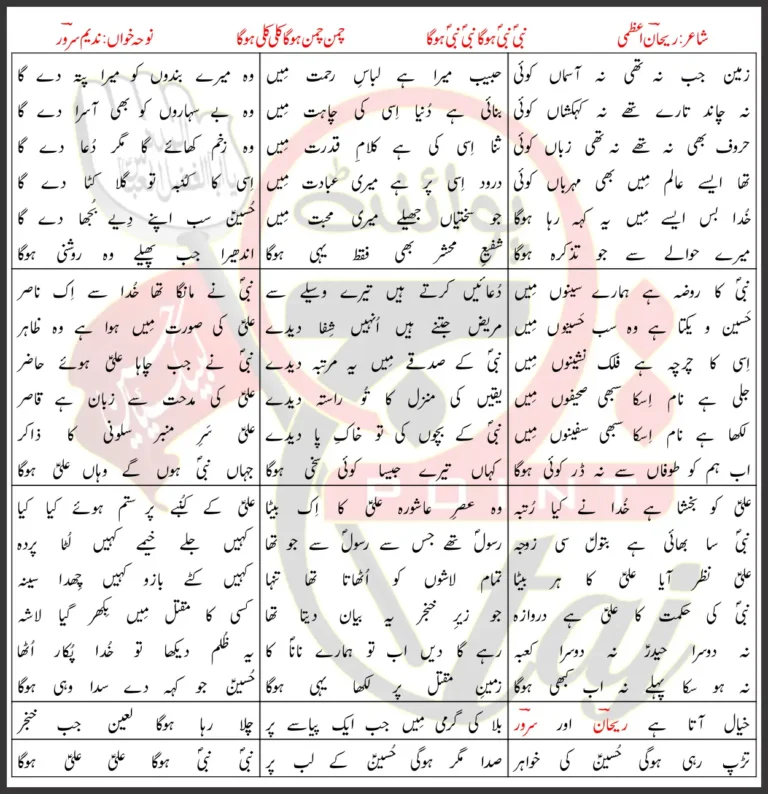 شاعر: ریحان اعظمی
نبیؐ نبیؐ ہوگا نبیؐ نبیؐ ہوگا
چمن چمن ہوگا کلی کلی ہوگا
نوحہ خواں: ندیم سرور
زمین جب نہ تھی نہ آسماں کوئی
نہ چاند تارے تھے نہ کہکشاں کوئی
حروف بھی نہ تھے نہ تھی زباں کوئی
تھا ایسے عالم میں بھی مہرباں کوئی
خُدا بس ایسے میں یہ کہہ رہا ہوگا
میرے حوالے سے جو تذکرہ ہوگا
حبیب میرا ہے لباسِ رحمت میں
بنائی ہے دُنیا اِسی کی چاہت میں
ثنا اِسی کی ہے کلامِ قدرت میں
درود اِسی پر ہے میری عبادت میں
جو سختیاں جھیلے میری محبت میں
شفیعِ محشر بھی فقط یہی ہوگا
وہ میرے بندوں کو میرا پتہ دے گا
وہ بے سہاروں کو بھی آسرا دے گا
وہ زخم کھائے گا مگر دُعا دے گا
اِسی کا کنبہ تو گلا کٹا دے گا
حُسینؑ سب اپنے دِیے بُجھا دے گا
اندھیرا جب پھیلے وہ روشنی ہوگا
نبیؐ کا روضہ ہے ہمارے سینوں میں
حَسین و یکتا ہے وہ سب حَسینوں میں
اِسی کا چرچہ ہے فلک نشینوں میں
جلی ہے نام اِسکا سبھی صحیفوں میں
لکھا ہے نام اِسکا سبھی سفینوں میں
اب ہم کو طوفاں سے نہ ڈر کوئی ہوگا
دُعائیں کرتے ہیں تیرے وسیلے سے
مریض جتنے ہیں اُنہیں شِفا دیدے
نبیؐ کے صدقے میں یہ مرتبہ دیدے
یقیں کی منزل کا تُو راستہ دیدے
نبیؐ کے بچوں کی تو خاکِ پا دیدے
کہاں تیرے جیسا کوئی سخی ہوگا
نبیؐ نے مانگا تھا خُدا سے اِک ناصر
علیؑ کی صورت میں ہوا ہے وہ ظاہر
نبیؐ نے جب چاہا علیؑ ہوئے حاضر
علیؑ کی مدحت سے زبان ہے قاصر
علیؑ سَرِ منبر سلونی کا ذاکر
جہاں نبیؐ ہوں گے وہاں علیؑ ہوگا
علیؑ کو بخشا ہے خُدا نے کیا رُتبہ
نبیؐ سا بھائی ہے بتولؑ سی زوجہ
علیؑ نظر آیا علیؑ کا ہر بیٹا
نبیؐ کی حکمت کا علیؑ ہے دروازہ
نہ دوسرا حیدرؑ نہ دوسرا کعبہ
نہ ہو سکا پہلے نہ اب کبھی ہوگا
وہ عصرِ عاشورہ علیؑ کا اِک بیٹا
رسولؐ تھے جس سے رسولؐ سے جو تھا
تمام لاشوں کو اُٹھاتا تھا تنہا
جو زیرِ خنجر یہ بیان دیتا تھا
رہے گا دیں اب تو ہمارے ناناؐ کا
زمینِ مقتل پر لکھا یہی ہوگا
علیؑ کے کُنبے پر ستم ہوئے کیا کیا
کہیں جلے خیمے کہیں لُٹا پردہ
کہیں کٹے بازو کہیں چِھدا سینہ
کسی کا مقتل میں بِکھر گیا لاشہ
یہ ظُلم دیکھا تو خُدا پُکار اُٹھا
حُسینؑ جو کہہ دے سدا وہی ہوگا
خیال آتا ہے ریحان اور سرور
بلا کی گرمی میں جب ایک پیاسے پر
چلا رہا ہوگا لعین جب خنجر
تڑپ رہی ہوگی حُسینؑ کی خواہر
صدا مگر ہوگی حُسینؑ کے لب پر
نبیؐ نبیؐ ہوگا علیؑ علیؑ ہوگا
POINT
taj